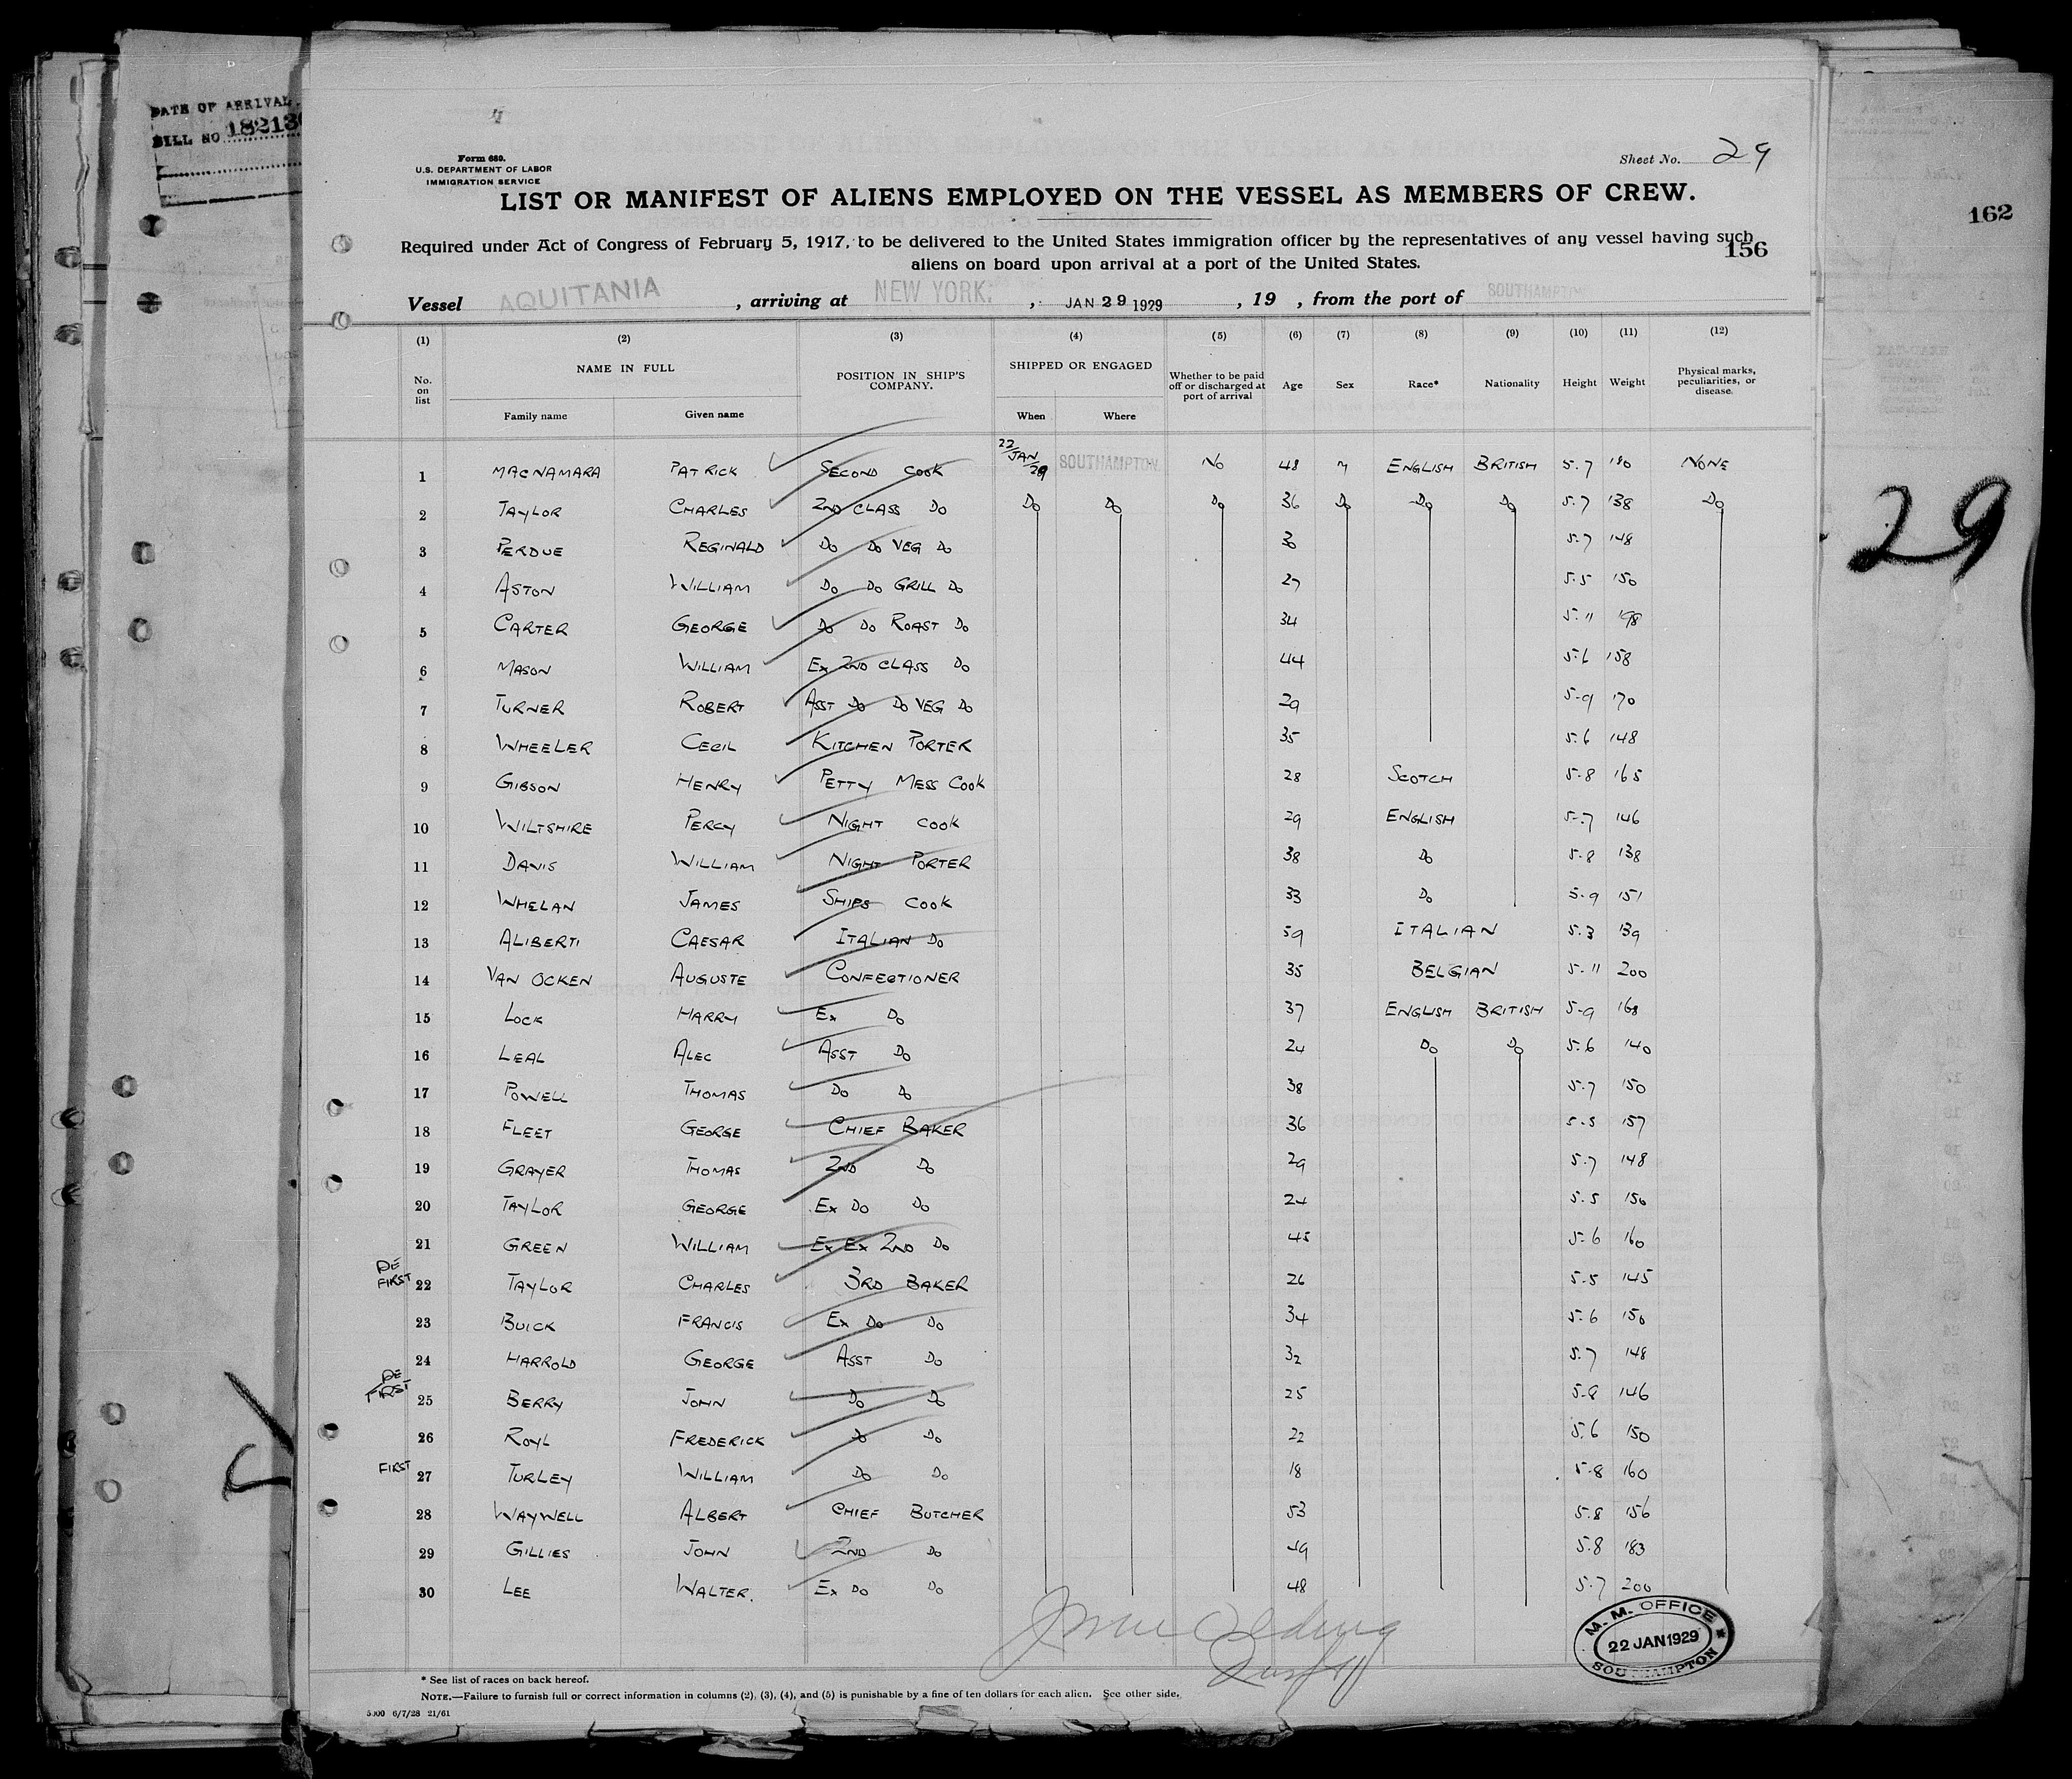 DATE OF ARRIVAL
BILL NO 18213
Form 680.
U.S. DEPARTMENT OF LABOR
IMMIGRATION SERVICE
Sheet No. 29
LIST OR MANIFEST OF ALIENS EMPLOYED ON THE VESSEL AS MEMBERS OF CREW.
162
Required under Act of Congress of February 5, 1917, to be delivered to the United States immigration officer by the representatives of any vessel having such
156
aliens on board upon arrival at a port of the United States.
Vessel AQUITANIA, arriving at NEW YORK, JAN 29 1929, 19 , from the port of SOUTHAMPTON
(1) (2) (3) (4) (5) (6) (7) (8) (9) (10) (11) (12)
No. on list NAME IN FULL POSITION IN SHIP'S COMPANY. SHIPPED OR ENGAGED Whether to be paid off or discharged at port of arrival Age Sex Race* Nationality Height Weight Physical marks, peculiarities, or disease.
Family name Given name When Where
1 MACNAMARA PATRICK SECOND COOK 22/JAN/29 SOUTHAMPTON No 48 M ENGLISH BRITISH 5.7 180 NONE
2 TAYLOR CHARLES 2ND CLASS DO DO DO DO 36 DO DO DO 5.7 138 DO
3 PERDUE REGINALD DO DO VEG DO 30 5.7 148
4 ASTON WILLIAM DO DO GRILL DO 27 5.5 150
5 CARTER GEORGE DO DO ROAST DO 34 5.11 198
6 MASON WILLIAM EX 2ND CLASS DO 44 5.6 158
7 TURNER ROBERT ASST DO DO VEG DO 29 5-9 170
8 WHEELER CECIL KITCHEN PORTER 35 5.6 148
9 GIBSON HENRY PETTY MESS COOK 28 SCOTCH 5-8 165
10 WILTSHIRE PERCY NIGHT COOK 29 ENGLISH 5-7 146
11 DAVIS WILLIAM NIGHT PORTER 38 DO 5.8 138
12 WHELAN JAMES SHIPS COOK 33 DO 5-9 151
13 ALIBERTI CAESAR ITALIAN DO 59 ITALIAN 5.3 139
14 VAN OCKEN AUGUSTE CONFECTIONER 35 BELGIAN 5-11 200
15 LOCK HARRY EX DO 37 ENGLISH BRITISH 5-9 168
16 LEAL ALEC ASST DO 24 DO DO 5.6 140
17 POWELL THOMAS DO DO 38 5.7 150
18 FLEET GEORGE CHIEF BAKER 36 5.5 157
19 GRAYER THOMAS 2ND DO 29 5.7 148
20 TAYLOR GEORGE EX DO DO 24 5.5 150
21 GREEN WILLIAM EX EX 2ND DO 45 5.6 160
DE FIRST 22 TAYLOR CHARLES 3RD BAKER 26 5.5 145
23 BUICK FRANCIS EX DO DO 34 5.6 150
24 HARROLD GEORGE ASST DO 32 5.7 148
DE FIRST 25 BERRY JOHN DO DO 25 5-8 146
26 ROYL FREDERICK DO DO 22 5.6 150
FIRST 27 TURLEY WILLIAM DO DO 18 5-8 160
28 WAYWELL ALBERT CHIEF BUTCHER 53 5.8 156
29 GILLIES JOHN 2ND DO 49 5.8 183
30 LEE WALTER. EX DO DO 48 5.7 200
29
M. M. OFFICE
22 JAN 1929
SOUTHAMPTON
* See list of races on back hereof.
NOTE.—Failure to furnish full or correct information in columns (2), (3), (4), and (5) is punishable by a fine of ten dollars for each alien. See other side.
5000 6/7/28 21/61